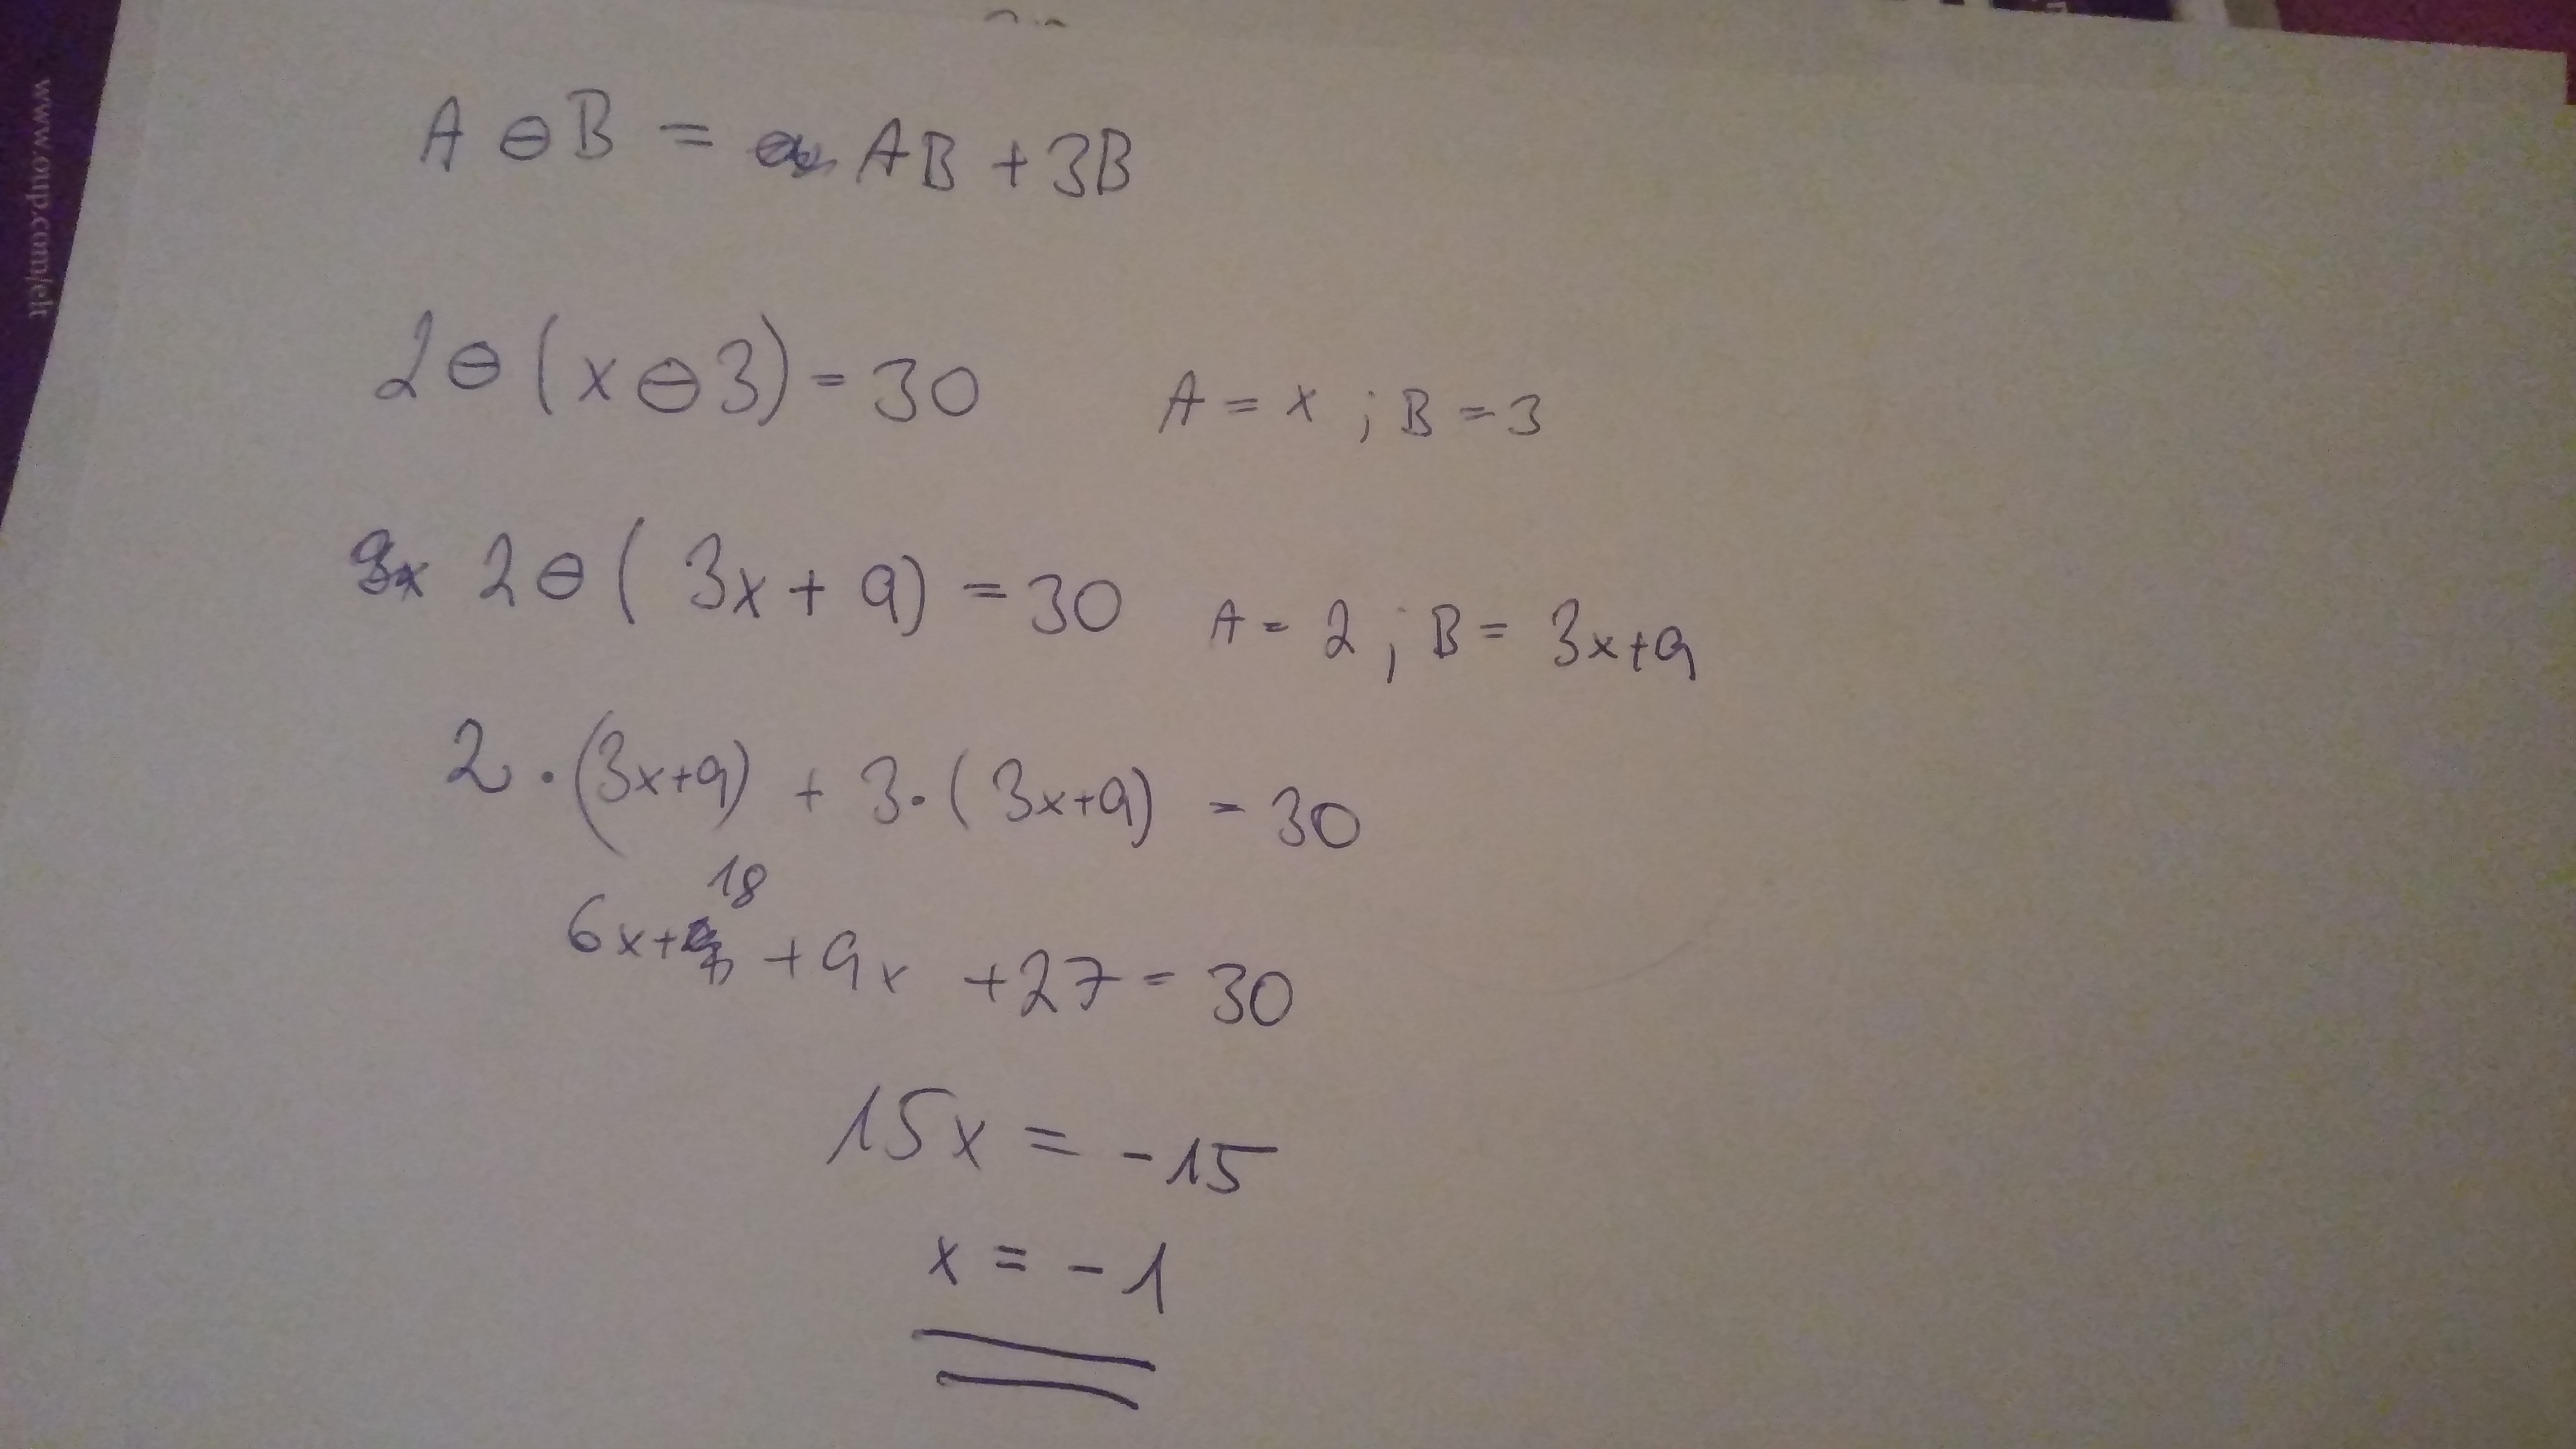 www.oup.com/elt
A ⊖ B = AB + 3B
2 ⊖ (x ⊖ 3) = 30 A = x ; B = 3
2 ⊖ ( 3x + 9) = 30 A = 2 ; B = 3x+9
2 · (3x+9) + 3 · ( 3x+9) = 30
18
6x+ +9x +27 = 30
15x = -15
x = -1